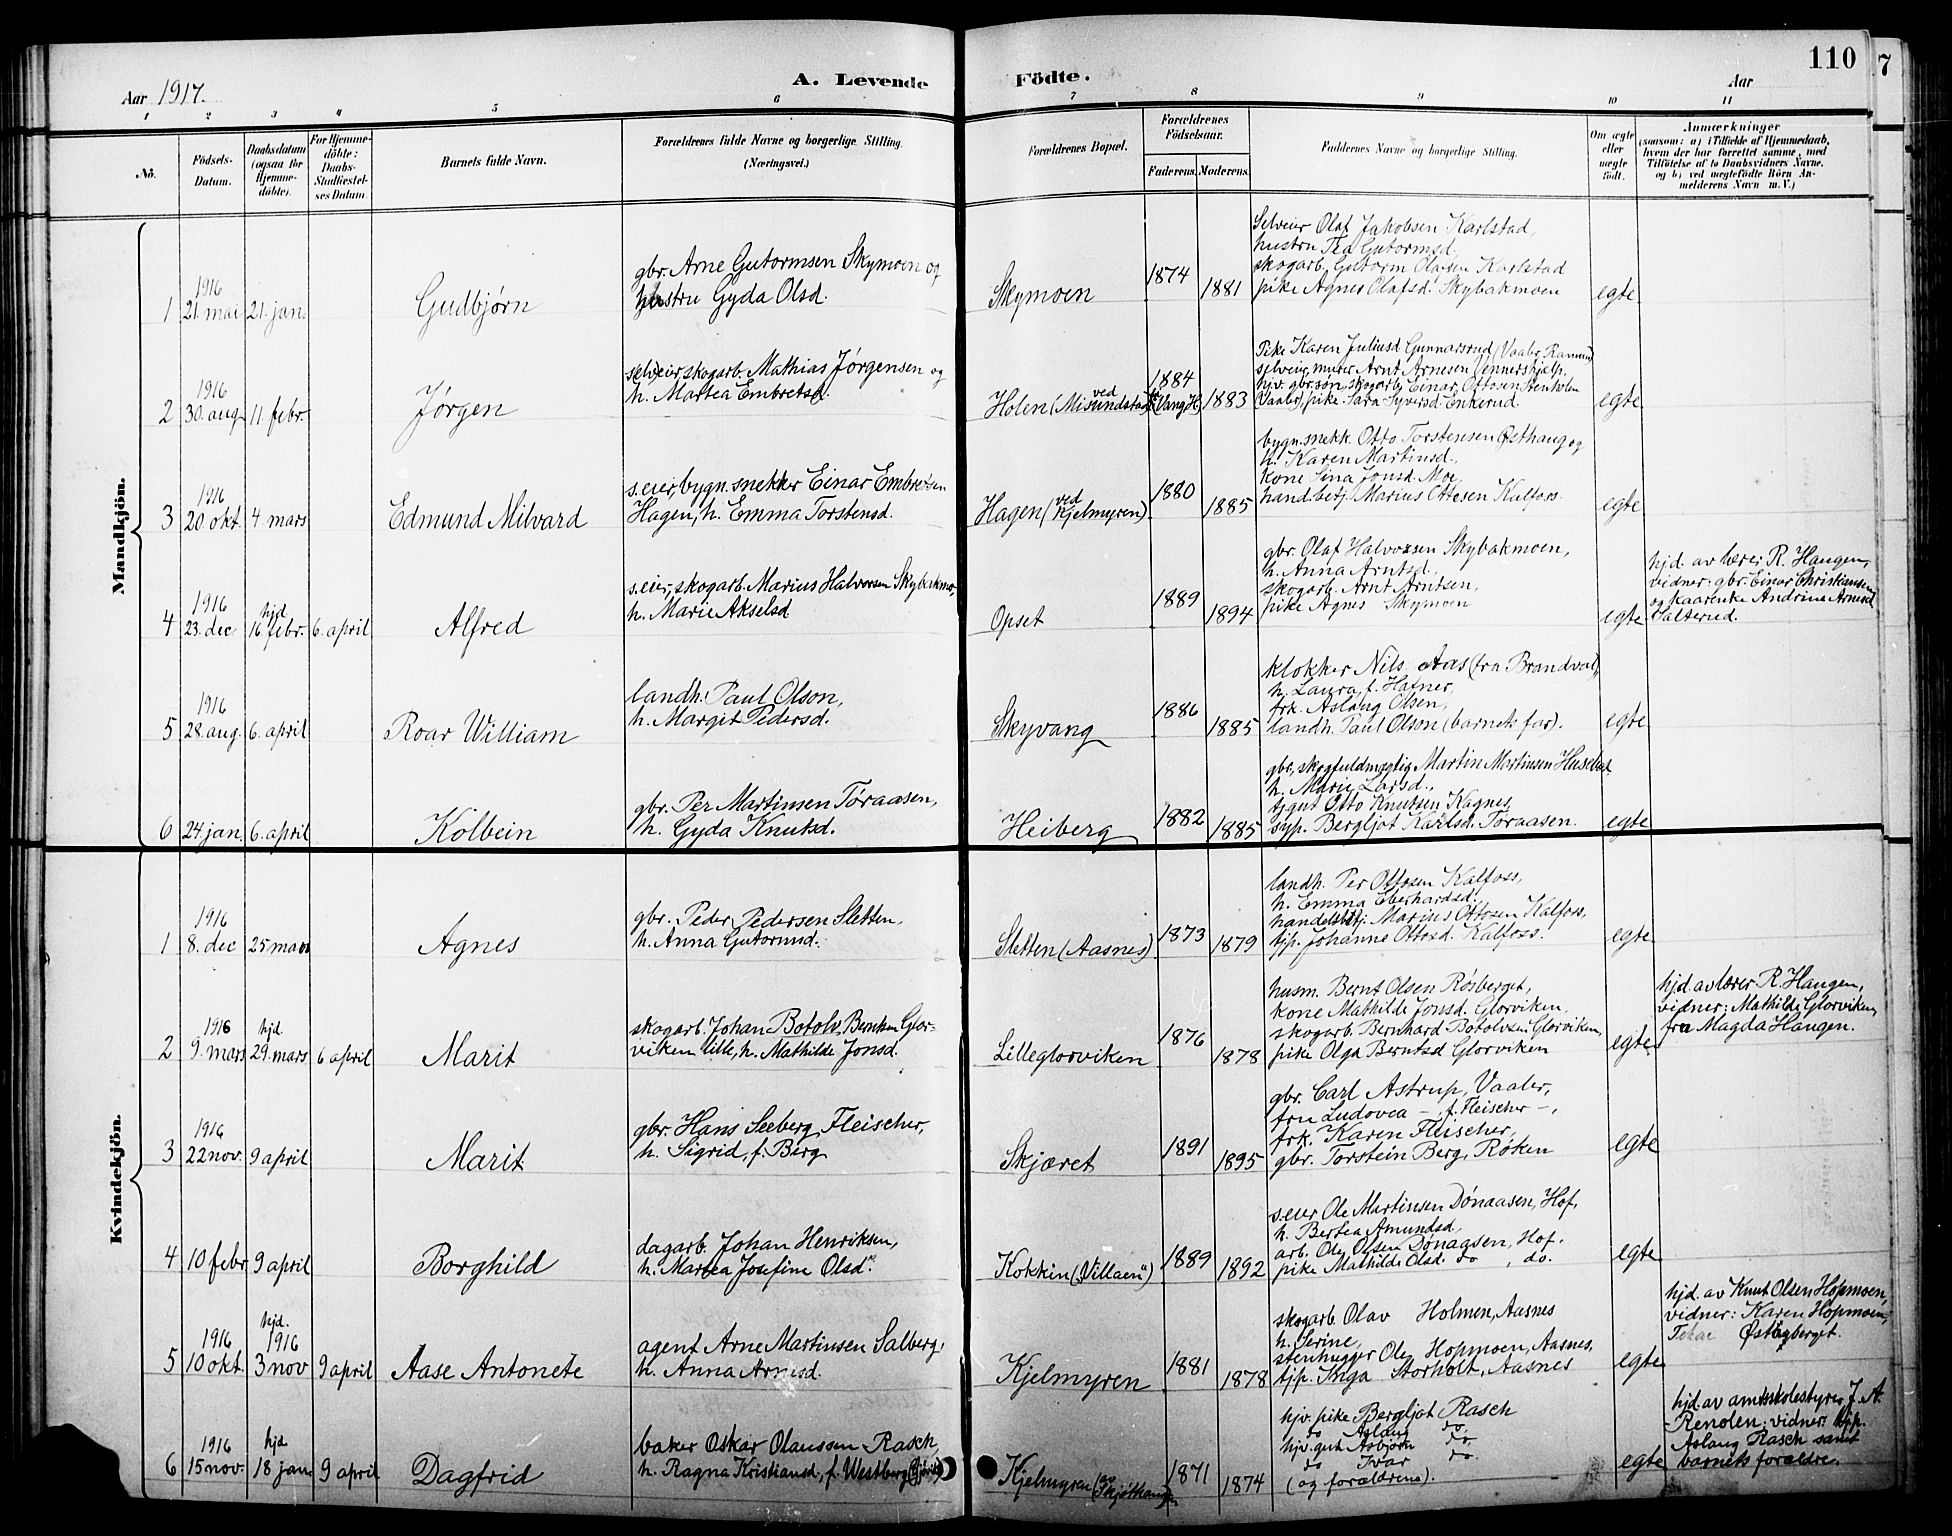 110
7
A. Levende
Födte.
Aar 1917.
Aar
1 2 3 4 5 6 7 8 9 10 11
Nô.
Födsels-
Datum.
Daabsdatum
(ogsaa for
Hjemme-
döbte).
For Hjemme-
döbte:
Daabs-
Stadfæstel-
ses Datum.
Barnets fulde Navn.
Forældrenes fulde Navne og borgerlige Stilling
(Næringsvei.)
Forældrenes Bopæl.
Forældrenes
Födselsaar.
Faderens. Moderens.
Faddernes Navne og borgerlige Stilling.
Om ægte
eller
uægte
födt.
Anmærkninger
(saasom: a) i Tilfælde af Hjemmedaab,
hvem der har forrettet samme, med
Tilföielse af to Daabsvidners Navne,
og b) ved uægtefödte Börn An-
melderens Navn m. V.)
Mandkjön.
1
1916
21. mai
21. jan.
Gudbjørn
gbr. Arne Gutormsen Skymoen og
hustru Gyda Olsd.
Skymoen
1874
1881
Selveier Olaf Jakobsen Karlstad,
hustru Tea Gutormsd.
skogarb. Gutorm Olavsen Karlstad
pike Agnes Olafsd. Skybakmoen
egte
2
1916
30. aug.
11. febr.
Jørgen
selveier, skogarb. Mathias Jørgensen og
h. Martea Embretsd.
Holen (ved Misundstad)
1884
(Vang H)
1883
Pike Karen Juliusd Gunnarsrud (Vaaler
selveier, murer Arnt Arnesen
hjv. gbr.søn, skogarb. Einar Ottosen Stenholen
(Vaaler), pike Sara Syversd. Enkerud.
egte
3
1916
20 okt.
4. mars
Edmund Milvard
s.eier, bygn. snekker Einar Embretsen
Hagen, h. Emma Torstensd.
Hagen (ved Kjelmyren)
1880
1885
bygn. snekk. Otto Torstensen Østhaug og
h. Karen Martinsd.,
kone Lina Jonsd. Moe,
hand.betj. Marius Ottesen Kalfoss.
egte
4
1916
23. dec
hjd
16 febr.
6. april
Alfred
s.eier, skogarb. Marius Halvorsen Skybakmoen,
h. Marie Akselsd
Opset
1889
1894
gbr. Olaf Halvorsen Skybakmoen,
h. Anna Arntsd.,
skogarb. Arnt Arntsen,
pike Agnes Skymoen
egte
hjd. av lærer R. Haugen,
vidner: gbr. Einar Christiansen
og kaarenke Andrine Arnesd
Salterud.
5
1916
28. aug.
6. april
Roar William
landh. Paul Olson,
h. Margit Pedersd.
Skyvang
1886
1885
klokker Nils Aas (fra Brandval),
h. Laura, f. Hafner,
frk. Aslaug Olsen,
landh. Paul Olson (barnets far).
egte
6
24. jan.
6. april
Kolbein
gbr. Per Martinsen Tøraasen,
h. Gyda Knutsd.
Heiberg
1882
1885
gbr., skogfuldmægtig Martin Martinsen Husebæk
h. Marie Larsd.,
tj.gut Otto Knutsen Kagnes,
syp. Bergljot Karlsd. Tøraasen.
egte
Kvindekjön.
1
1916
8. dec
25 mars
Agnes
gbr. Peder Pedersen Sletten,
h. Anna Gutormsd.
Sletten (Aasnes)
1873
1879
landh. Per Ottosen Kalfoss,
h. Emma Eberhardsd.,
handelsbtj. Marius Ottosen Kalfoss,
tjp. Johanne Ottosd. Kalfoss.
egte
2
1916
9. mars
hjd
29. mars
6 april
Marit
skogarb. Johan Botolv Berntsen Glor-
viken lille, h. Mathilde Jonsd.
Lilleglorviken
1876
1878
husm. Bernt Olsen Rösberget,
kone Mathilde Jonsd. Glorviken,
skogarb. Bernhard Botolvsen Glorviken,
pike Olga Berntsd Glorviken
egte
hjd. av lærer R. Haugen,
vidner: Mathilde Glorviken,
fru Magda Haugen.
3
1916
22 nov.
9 april
Marit
gbr. Hans Seeberg Fleischer,
h. Sigrid, f. Berg
Skjæret
1891
1895
gbr. Carl Astrup, Vaaler,
fru Ludovca – , f. Fleischer – ,
frk. Karen Fleischer,
gbr. Torstein Berg, Røken
egte
4
10 febr
9 april
Borghild
dagarb. Johan Henriksen,
h. Martea Josefine Olsd.
Kokkin ("Villaen")
1889
1892
s.eier Ole Martinsen Dönaasen, Hof,
h. Bertea Amundsd.,
arb. Ole Olsen Dönaasen, Hof.
pike Mathilde Olsd. do , do.
egte
5
1916
10 okt.
hjd.
1916
3 nov
9 april
Aase Antonette
agent Arne Martinsen Salberg,
h. Anna Arnesd.
Kjelmyren
1881
1878
skogarb. Olav Holmen, Aasnes
h. Serine,
stenhugger Ole Hopmoen, Aasnes,
tjp. Inga Storholt, Aasnes
egte
hjd. av Knut Olsen Hopmoen,
vidner: Karen Hopmoen,
Østagberget.
6
1916
15 nov.
hjd
18 jan.
9 april
Dagfrid
baker Oskar Olaussen Rasch,
h. Ragna Kristiansd., f. Westberg (Gjövik)
Kjelmyren
1871
1874
hjv. pike Bergljot Rasch
do Aslaug do.
hjv. gut Asbjörn do.
do Ivar do.
(og forældrene).
egte
hjd. av amtsskolestyrer J. A.
Renolen; vidner: tjp.
Aslaug Rasch samt
barnets forældre.